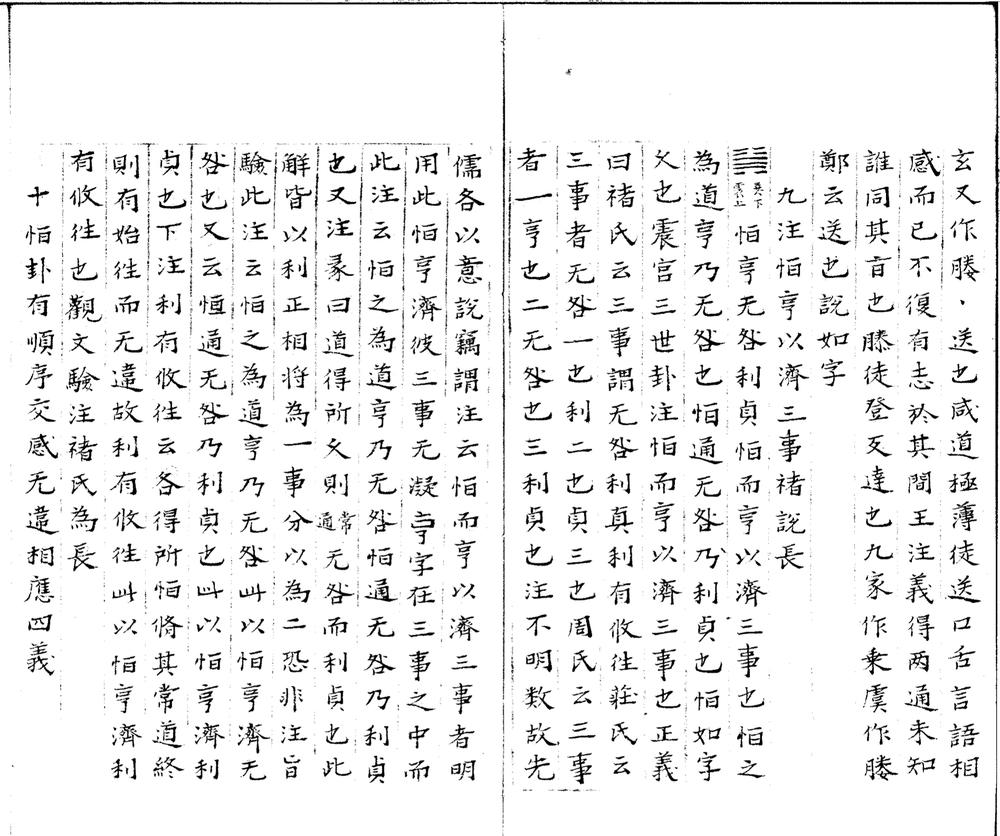 玄又作滕、送也咸道極薄徒送口舌言語相
感而已不復有志於其間王注義得两通未知
誰同其旨也滕徒登反達也九家作乗虞作媵
鄭云送也說如字
九注恒亨以濟三事褚說長
䷟巽下震上恒亨无咎利貞恒而亨以濟三事也恒之
為道亨乃无咎也恒通无咎乃利貞也恒如字
久也震宮三世卦注恒而亨以濟三事也正義
曰褚氏云三事謂无咎利真利有攸往莊氏云
三事者无咎一也利二也貞三也周氏云三事
者一亨也二无咎也三利貞也注不明数故先
儒各以意說竊謂注云恒而亨以濟三事者明
用此恒亨濟彼三事无凝亨字在三事之中而
此注云恒之為道亨乃无咎恒通无咎乃利貞
也又注彖曰道得所久則常通无咎而利貞也此
解皆以利正相將為一事分以為二恐非注旨
驗此注云恒之為道亨乃无咎此以恒亨濟无
咎也又云恒通无咎乃利貞也此以恒亨濟利
貞也下注利有攸往云各得所恒脩其常道終
則有始往而无違故利有攸往此以恒亨濟利
有攸往也觀文驗注褚氏為長
十恒卦有順序交感无違相應四義